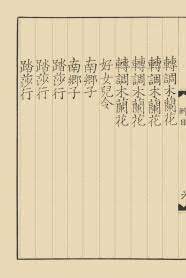 轉調木蘭花
轉調木蘭花
轉調木蘭花
轉調木蘭花
好女兒令
南鄉子
南鄉子
踏莎行
踏莎行
踏莎行